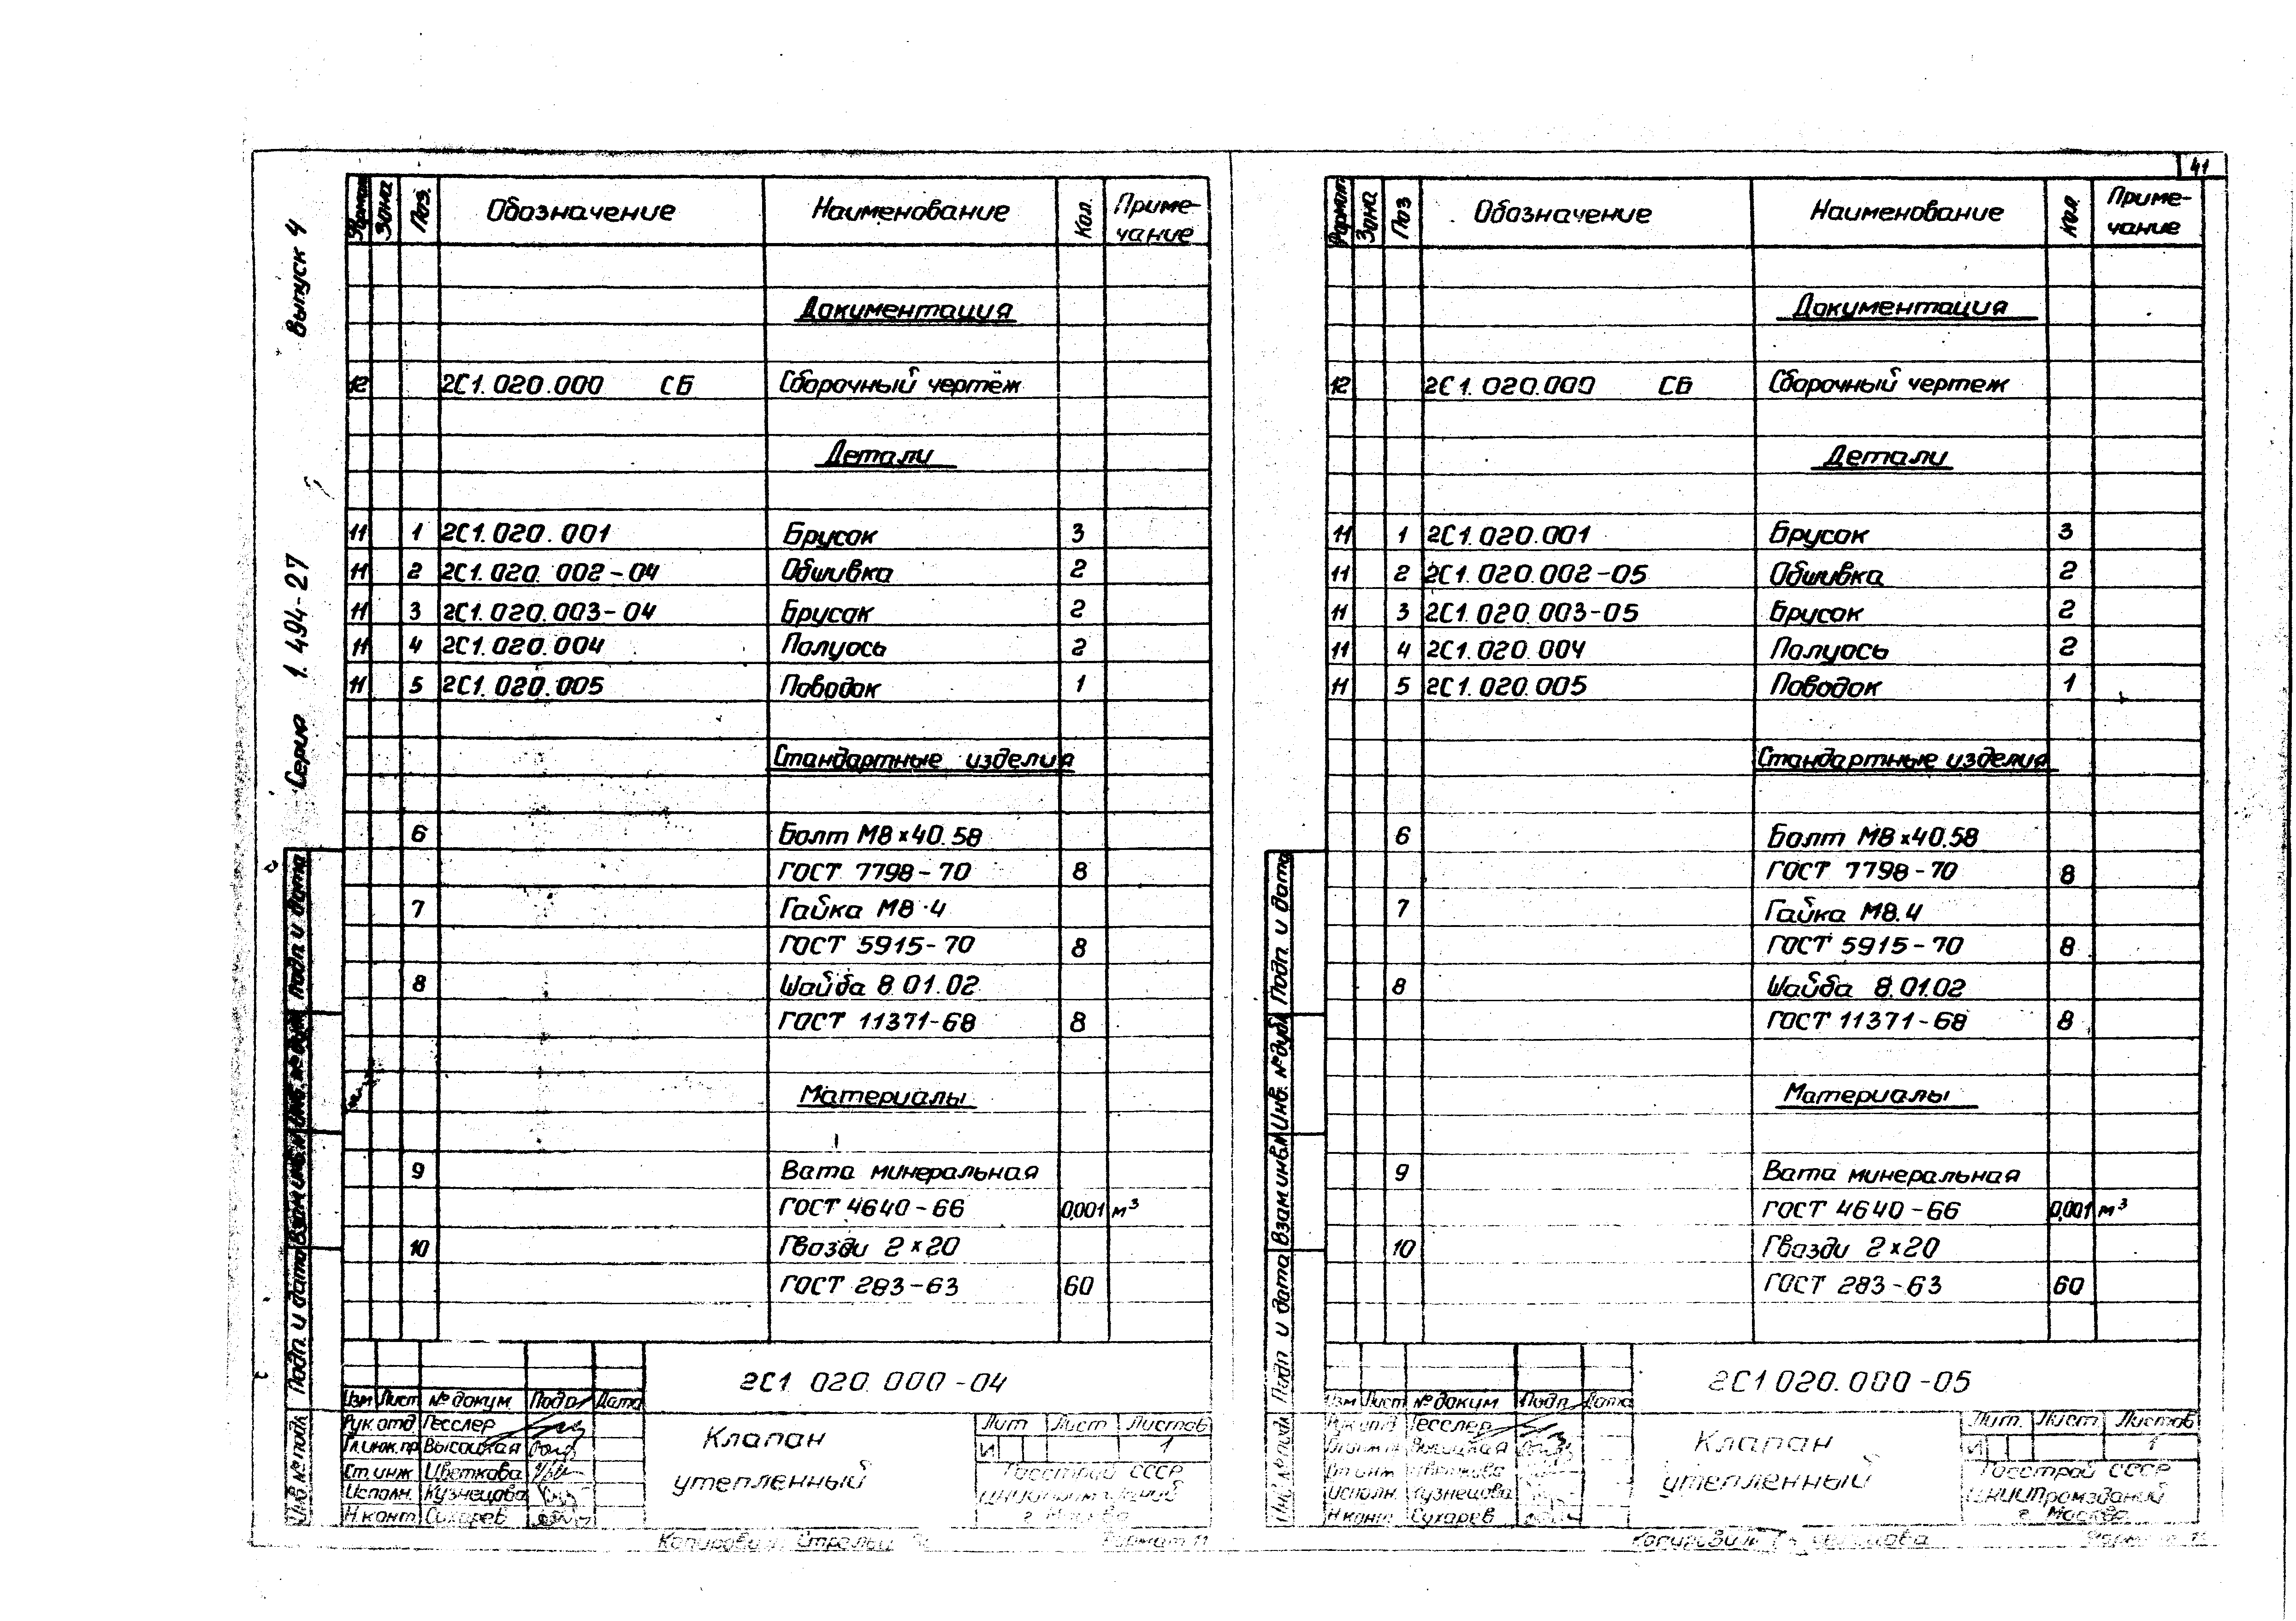 41
Выпуск 4
Серия 1.494-27
Формат Зона Поз. Обозначение Наименование Кол. Приме-
чание
Документация
12 2С1.020.000 СБ Сборочный чертёж
Детали
11 1 2С1.020.001 Брусок 3
11 2 2С1.020.002-04 Обшивка 2
11 3 2С1.020.003-04 Брусок 2
11 4 2С1.020.004 Полуось 2
11 5 2С1.020.005 Поводок 1
Стандартные изделия
6 Болт М8х40.58
ГОСТ 7798-70 8
7 Гайка М8.4
ГОСТ 5915-70 8
8 Шайба 8.01.02
ГОСТ 11371-68 8
Материалы
9 Вата минеральная
ГОСТ 4640-66 0,001 м³
10 Гвозди 2х20
ГОСТ 283-63 60
Инв.№ подл. Подп. и дата Взам.инв.№ Инв.№ дубл. Подп. и дата
2С1 020.000-04
Изм Лист № докум Подп. Дата
Рук.отд Гесслер
Гл.инж.пр Высоцкая
Ст.инж Цветкова
Исполн. Кузнецова
Н.конт Сухарев
Клапан
утепленный
Лит Лист Листов
И 1
Госстрой СССР
ЦНИИпромзданий
г. Москва
Копировал Формат 11
Формат Зона Поз Обозначение Наименование Кол. Приме-
чание
Документация
12 2С1.020.000 СБ Сборочный чертеж
Детали
11 1 2С1.020.001 Брусок 3
11 2 2С1.020.002-05 Обшивка 2
11 3 2С1.020.003-05 Брусок 2
11 4 2С1.020.004 Полуось 2
11 5 2С1.020.005 Поводок 1
Стандартные изделия
6 Болт М8х40.58
ГОСТ 7798-70 8
7 Гайка М8.4
ГОСТ 5915-70 8
8 Шайба 8.01.02
ГОСТ 11371-68 8
Материалы
9 Вата минеральная
ГОСТ 4640-66 0,001 м³
10 Гвозди 2х20
ГОСТ 283-63 60
Инв.№ подл. Подп и дата Взам.инв.№ Инв.№ дубл. Подп. и дата
2С1 020.000-05
Изм Лист № докум Подп. Дата
Рук.отд Гесслер
Высоцкая
Ст.инж Цветкова
Исполн. Кузнецова
Н.конт Сухарев
Клапан
утепленный
Лит. Лист Листов
И 1
Госстрой СССР
ЦНИИПромзданий
г. Москва
Копировал Формат